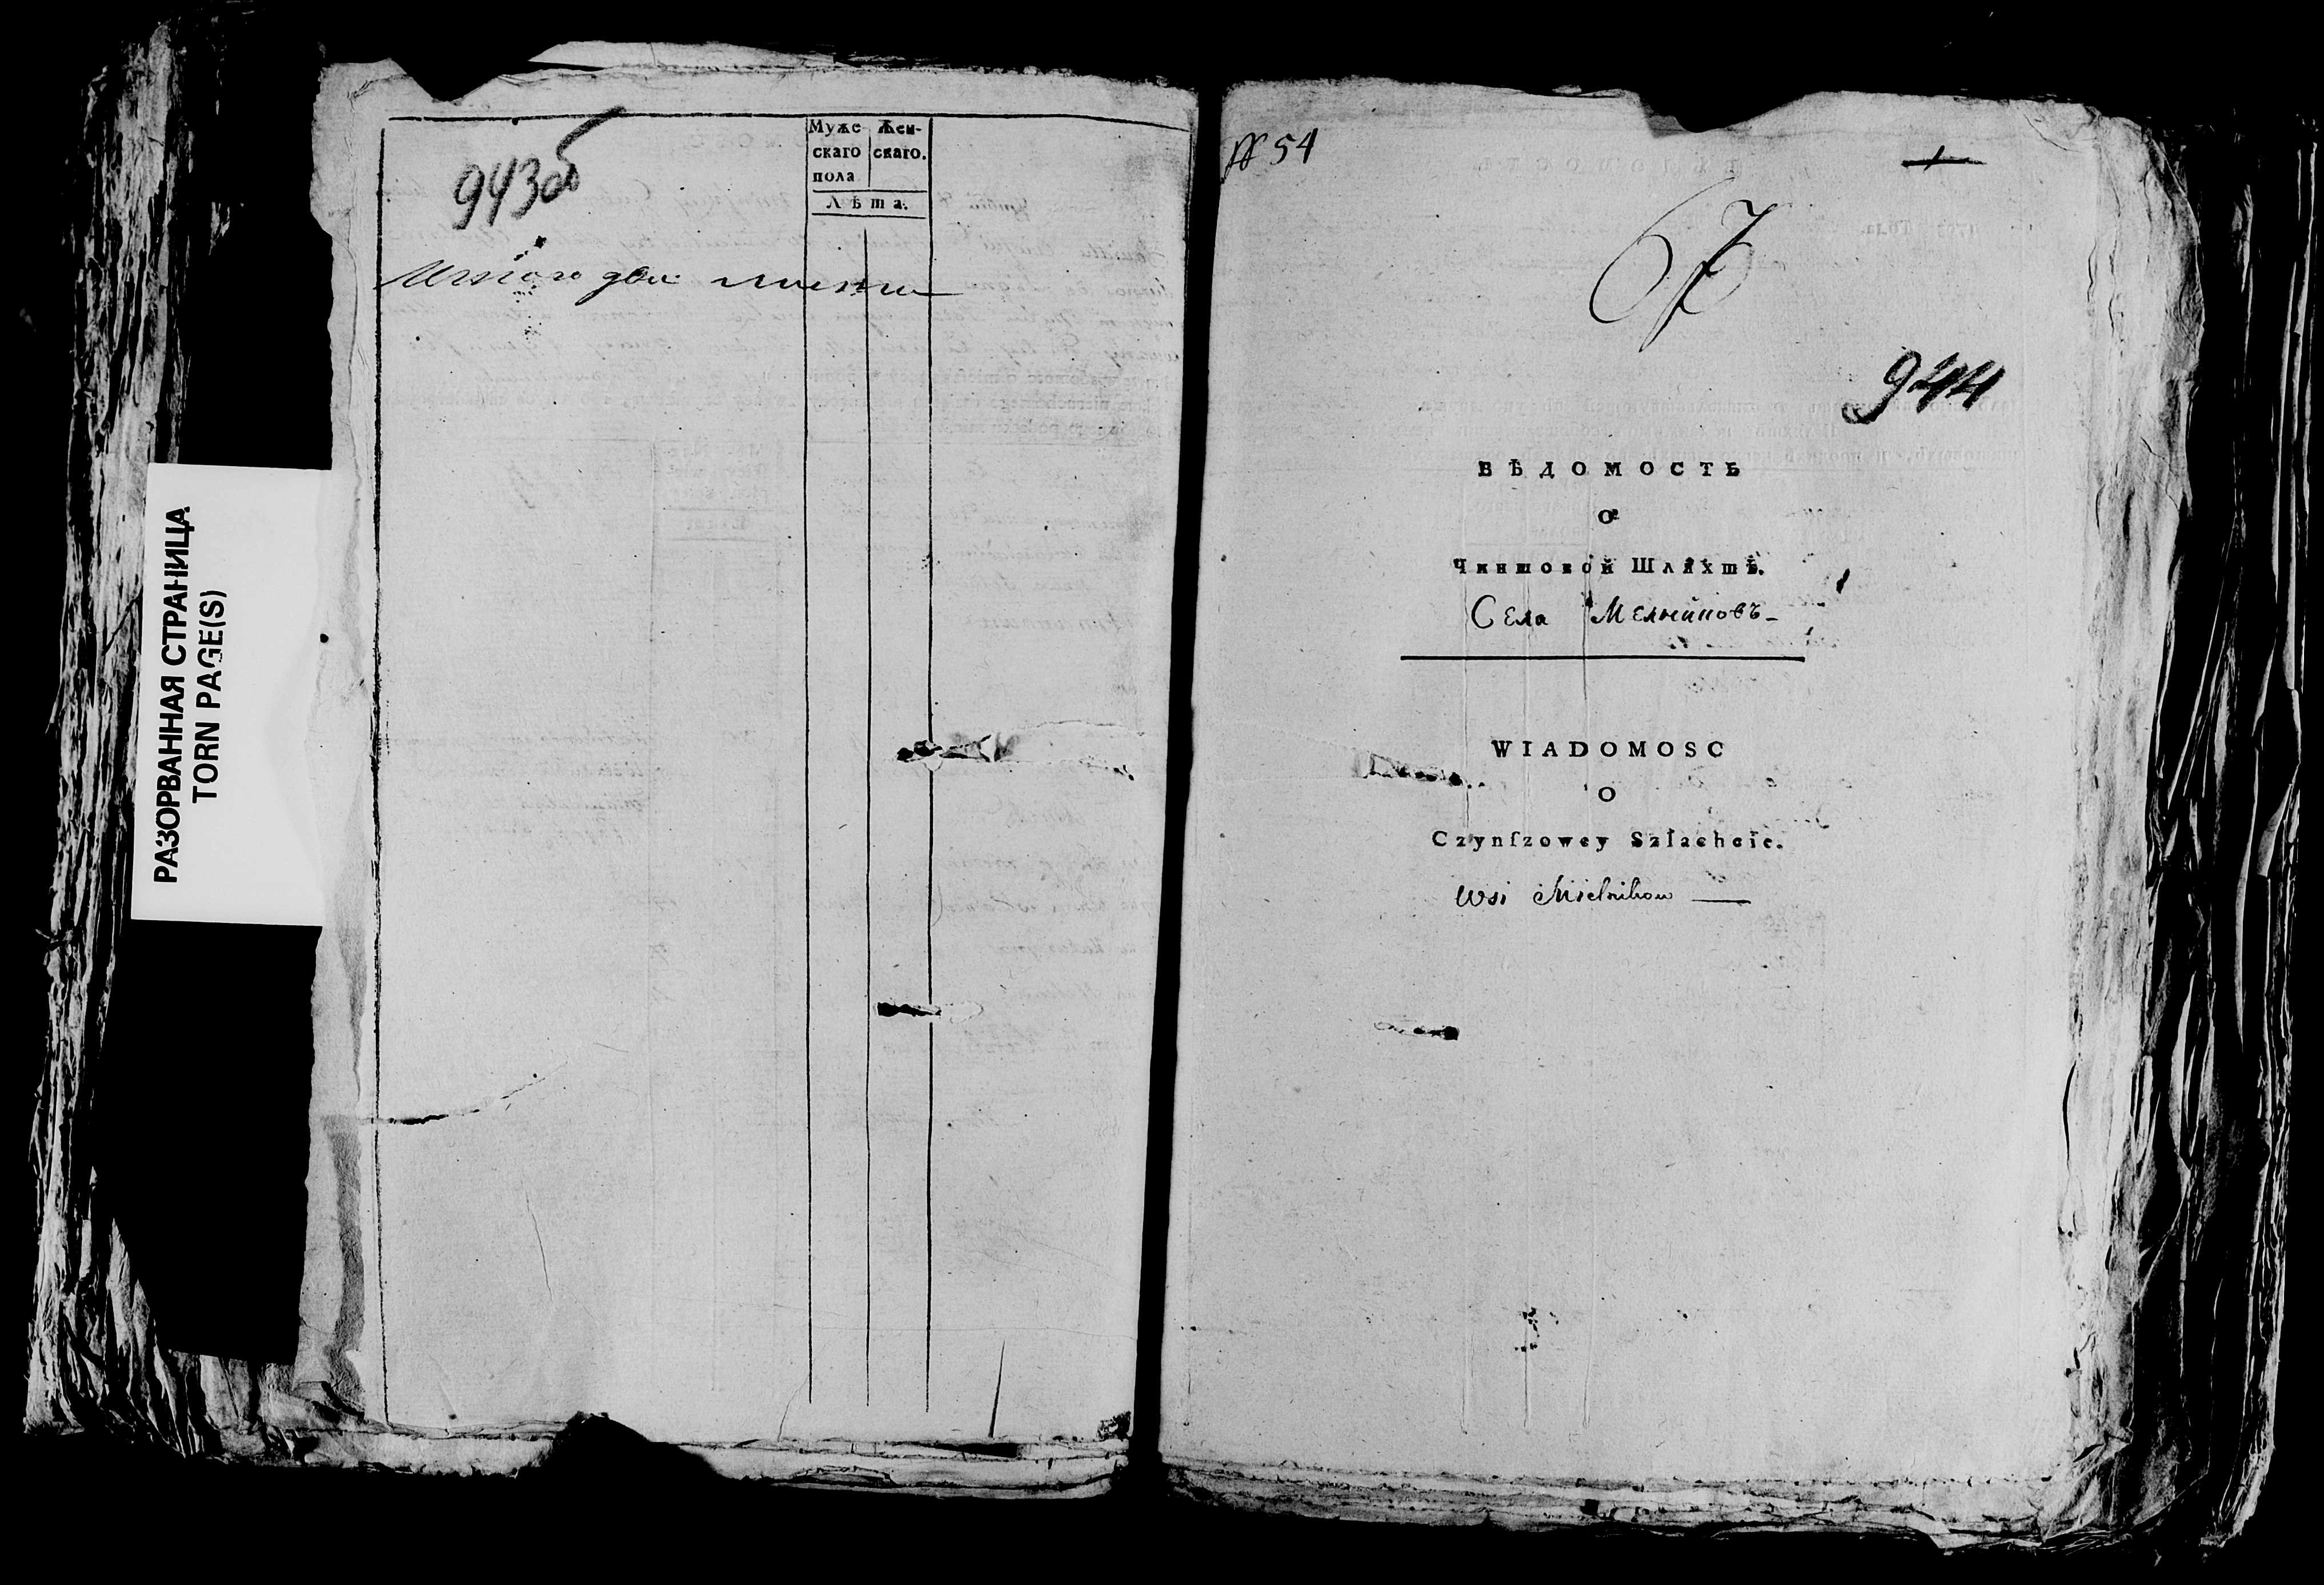 РАЗОРВАННАЯ СТРАНИЦА
TORN PAGE(S)
943об
Муже- Жен-
скаго скаго.
пола
Лѣта.
Итого два
№ 54
1
67
944
ВѢДОМОСТЬ
О
Чиншовой Шляхтѣ.
Села Мельниковъ
WIADOMOSC
O
Czynſzowey Szlachcie.
Wsi Mielnikow